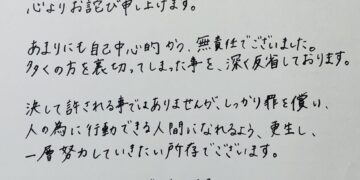 心よりお詫び申し上げます。
あまりにも自己中心的かつ、無責任でございました。
多くの方を裏切ってしまった事を、深く反省しております。
決して許される事ではありませんが、しっかり罪を償い、
人の為に行動できる人間になれるよう、更生し、
一層努力していきたい所存でございます。